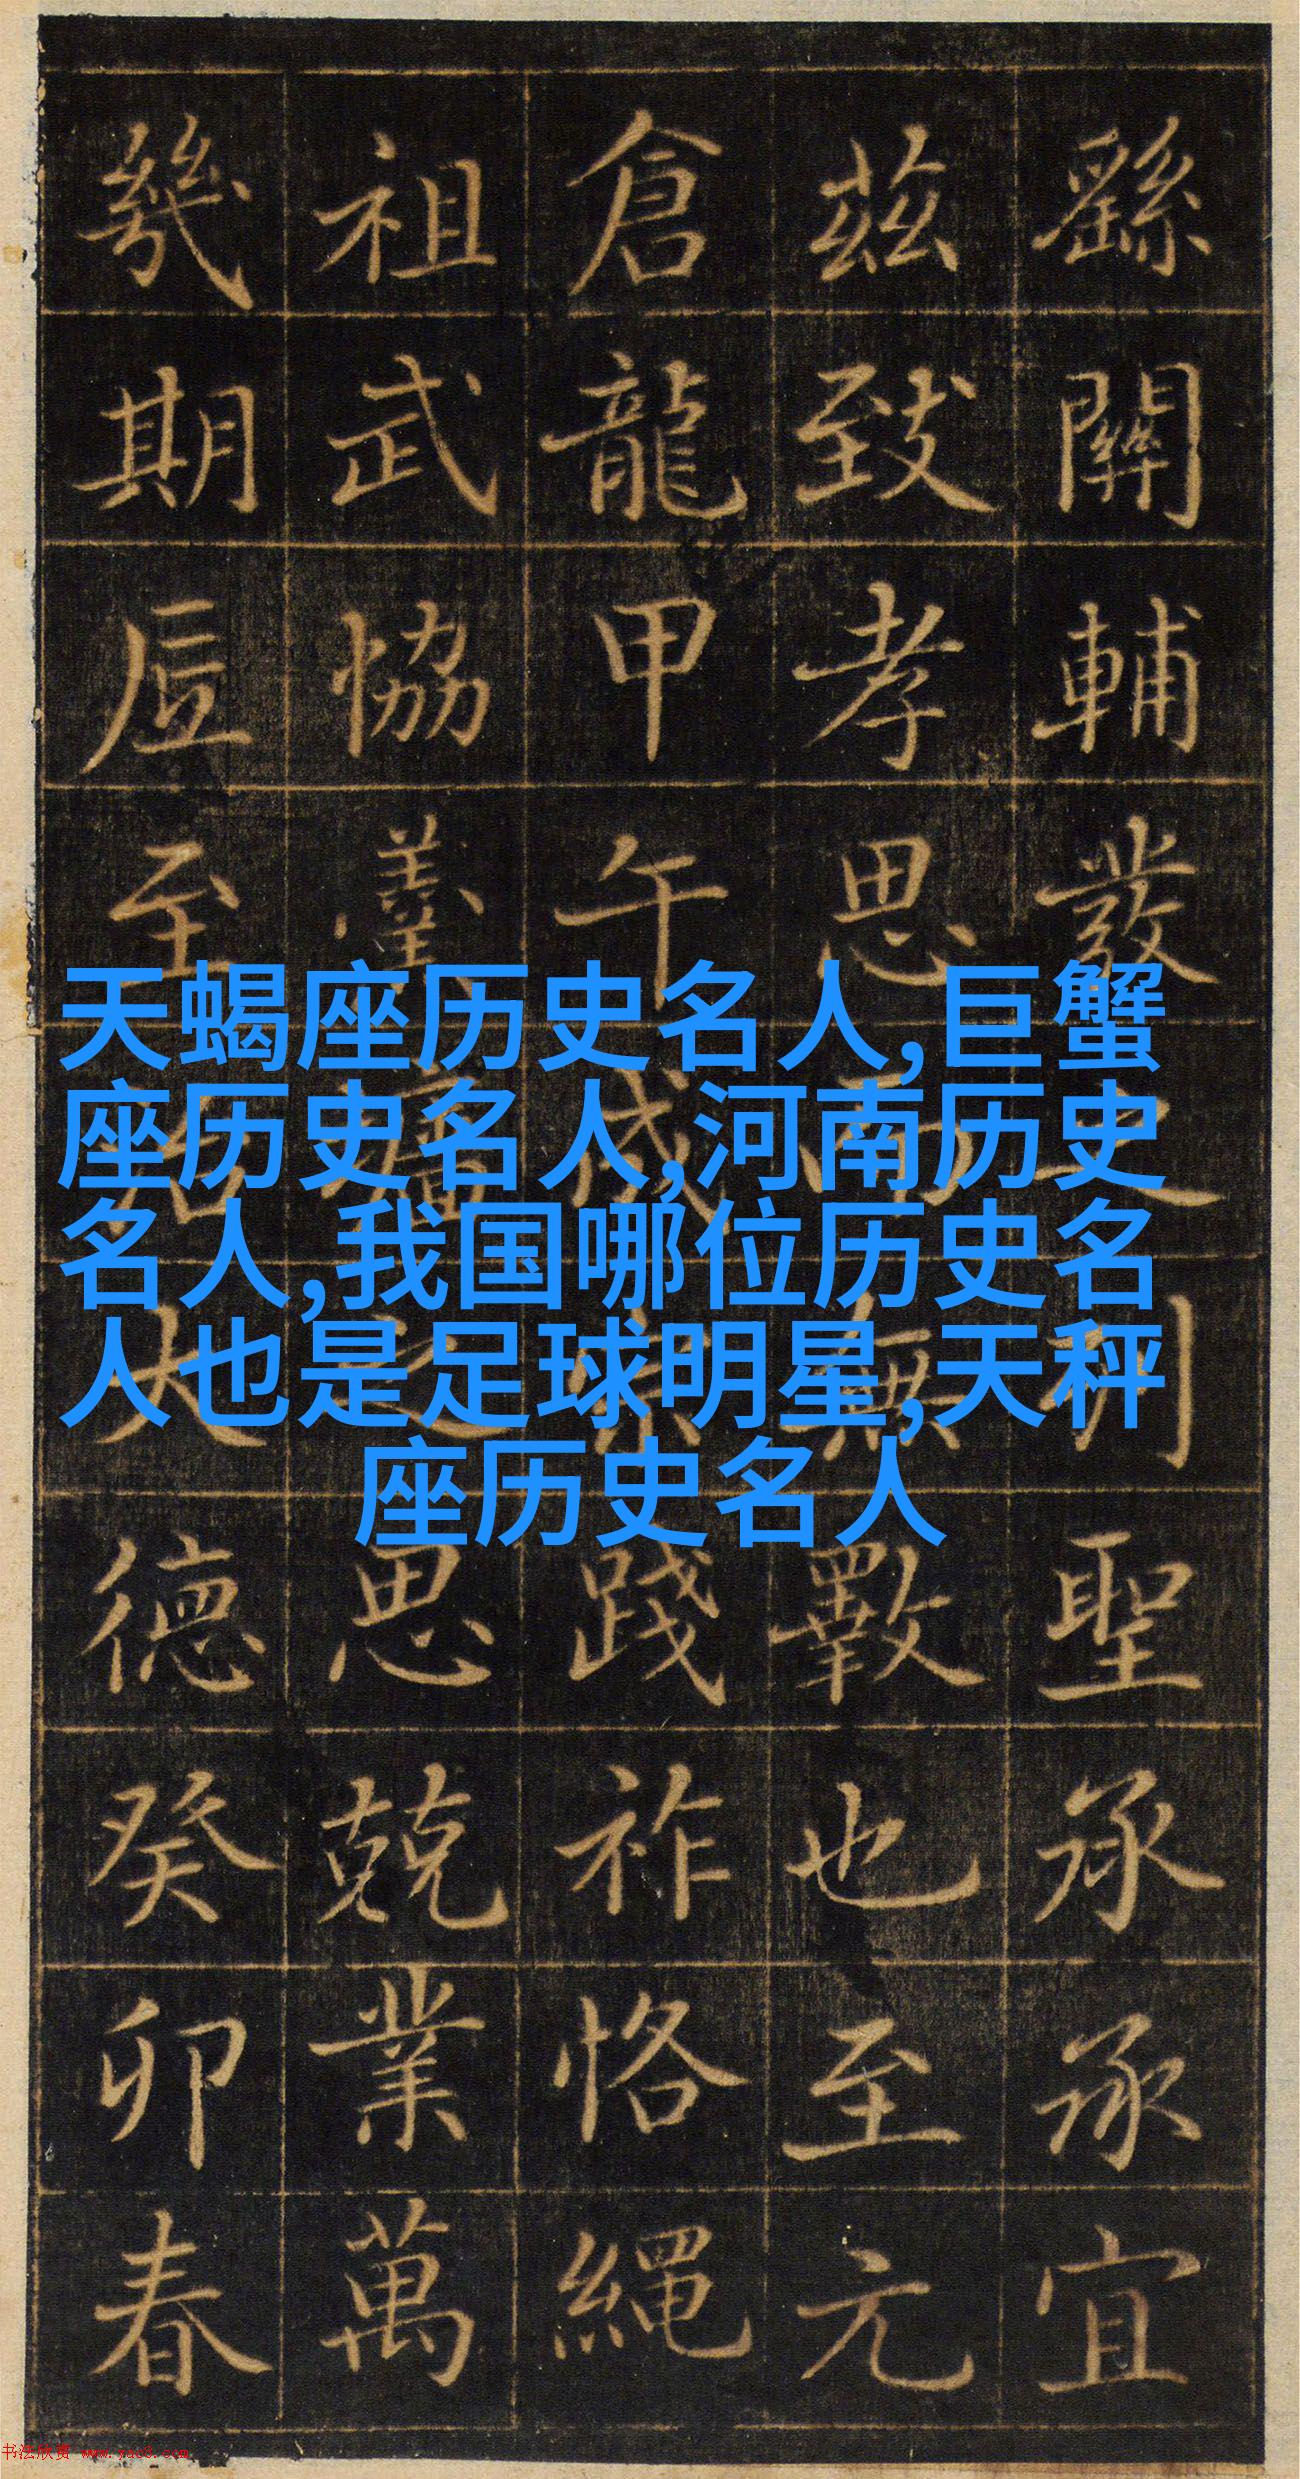 繇關輔發之列聖承承宜
茲致孝思而無斁也至元
倉龍甲午成宗踐祚恪繩
祖武協羹墻之思兢業萬
幾期底至治大德癸卯春
天蝎座历史名人,巨蟹
座历史名人,河南历史
名人,我国哪位历史名
人也是足球明星,天秤
座历史名人
书法欣赏 www.yac8.com